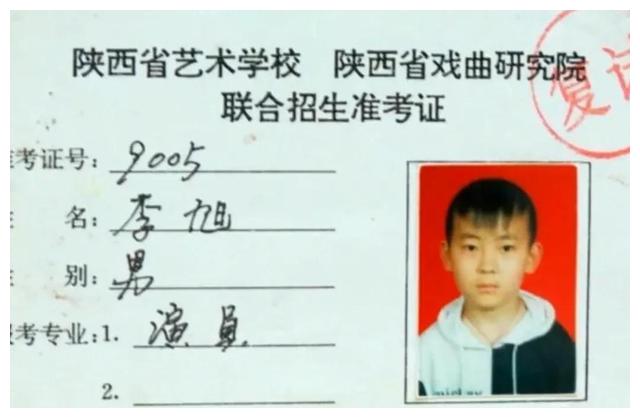 陕西省艺术学校 陕西省戏曲研究院
联合招生准考证
复试
考证号: 9005
名: 李旭
别: 男
报考专业: 1. 演员
2.